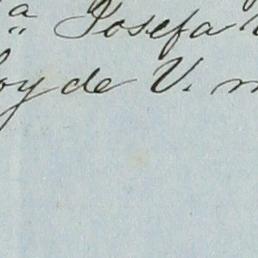 a Josefa
oy de V.